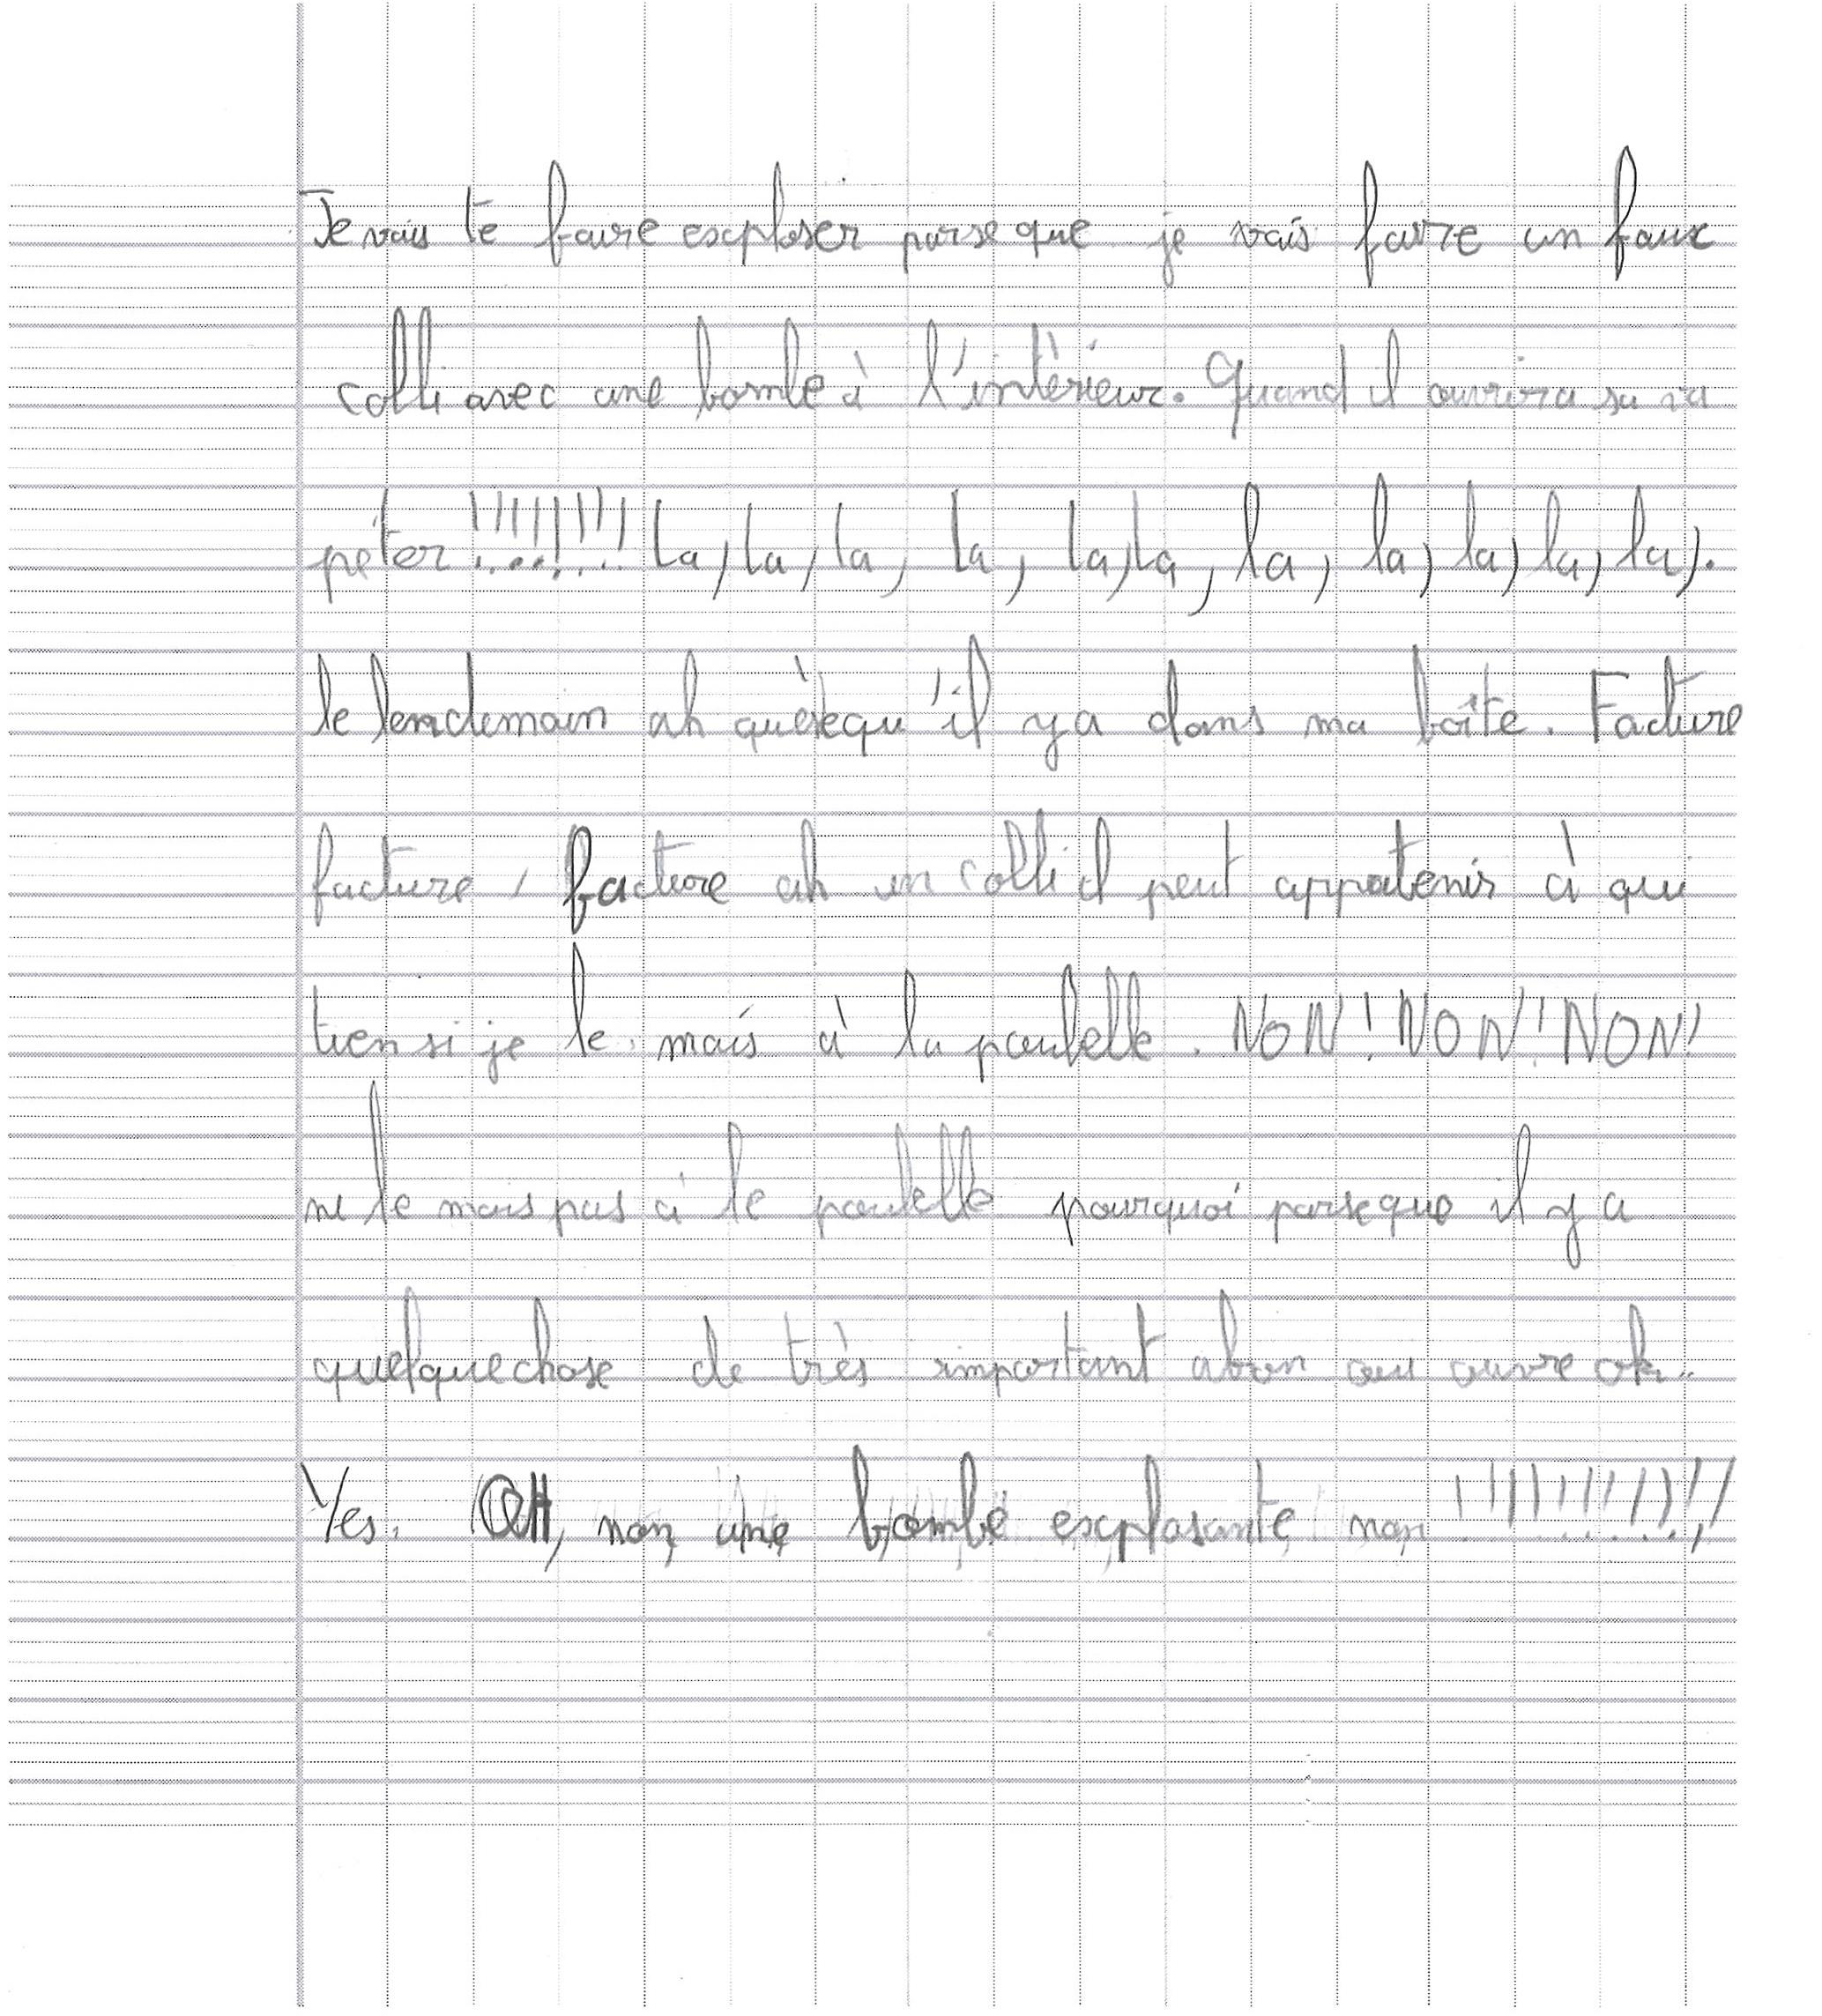 Je vais te faire exploser parse que je vais faire un faux
colli avec une bombe à l'intèrieur. Quand il ouvrira sa va
péter !!!!!!!!! La, La, la, la, la, la, la, la, la, la, la).
le lendemain ah quèsequ'il y a dans ma boîte. Facture
facture, facture ah un colli il peut appatenir à qui
tien si je le mais à la poubelle. NON! NON! NON!
ne le mais pas à le poubelle pourquoi parseque il y a
quelquechose de très important abon oui ouvre ok..
Yes. OH, non, une bombe explosante non !!!!!!!!!!!